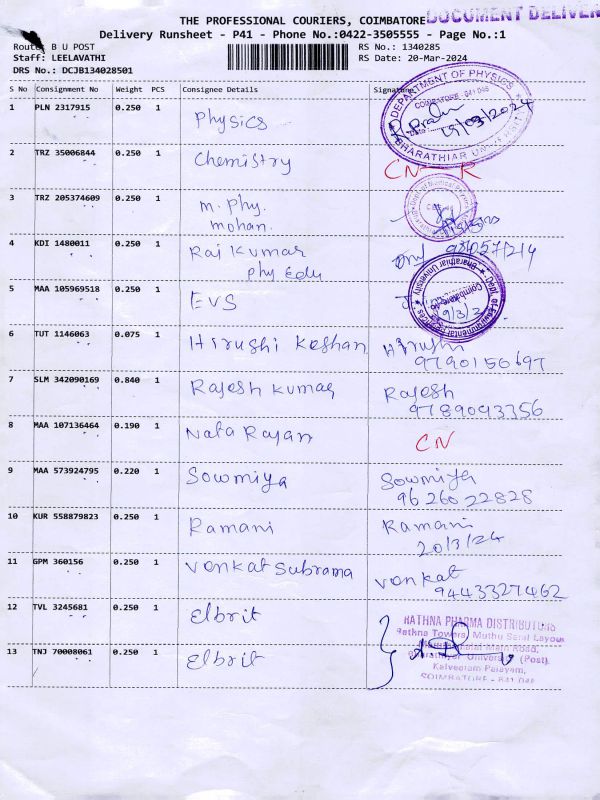 THE PROFESSIONAL COURIERS, COIMBATORE
DOCUMENT DELIVER
Delivery Runsheet - P41 - Phone No.:0422-3505555 - Page No.:1
Route: B U POST
RS No.: 1340285
Staff: LEELAVATHI
RS Date: 20-Mar-2024
DRS No.: DCJB134028501
S No Consignment No Weight PCS Consignee Details Signature
1 PLN 2317915 0.250 1 Physics
DEPARTMENT OF PHYSICS
COIMBATORE - 641 046
BHARATHIAR
2 TRZ 35006844 0.250 1 Chemistry CN R
3 TRZ 205374609 0.250 1 m. phy.
mohan.
4 KDI 1480011 0.250 1 Raj Kumar
phy Edu
5 MAA 105969518 0.250 1 EVS
Bharathiar University
6 TUT 1146063 0.075 1 Hirushi Keshan Hirushi
9790156697
7 SLM 342090169 0.840 1 Rajesh Kumar Rajesh
9789093356
8 MAA 107136464 0.190 1 Nata Rajan CN
9 MAA 573924795 0.220 1 Sowmiya Sowmiya
9626022828
10 KUR 558879823 0.250 1 Ramani Ramani
20/3/24
11 GPM 360156 0.250 1 Venkat Subrama Venkat
9443327462
12 TVL 3245681 0.250 1 Elbrit
RATHNA PHARMA DISTRIBUTORS
Rathna Towers, Muthu Layout
Main Road,
13 TNJ 70008061 0.250 1 Elbrit
Bharathiar University (Post)
Kalveeram Palayam,
COIMBATORE - 641 046